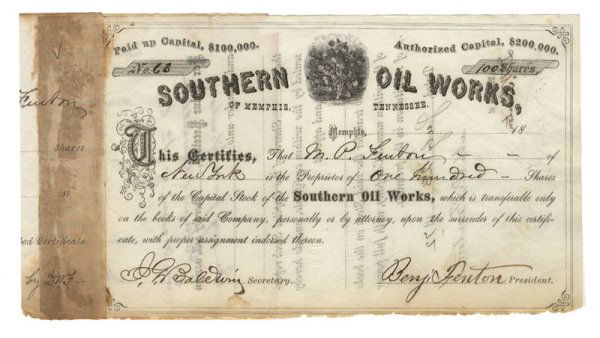 Paid up Capital, $100,000.
Authorized Capital, $200,000.
No. 63
100 Shares.
SOUTHERN OIL WORKS,
OF MEMPHIS, TENNESSEE.
Memphis, 18
This Certifies, That M. P. Fenton of
New York is the Proprietor of One hundred Shares
of the Capital Stock of the Southern Oil Works, which is transferable only
on the books of said Company, personally or by attorney, upon the surrender of this certifi-
cate, with proper assignment indorsed thereon.
Baldwin Secretary.
Benj. Fenton President.
Fenton
Shares
187
ed Certificate.
by